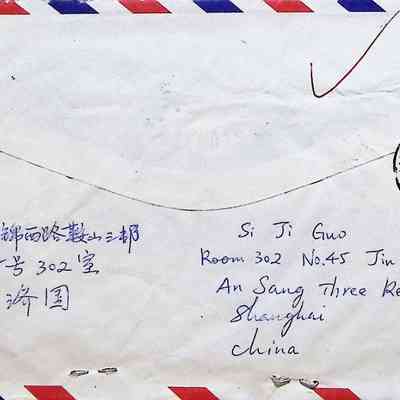 锦西路鞍山三邨
号302室
济国
Si Ji Guo
Room 302 No.45 Jin
An Sang Three Re
Shanghai
China